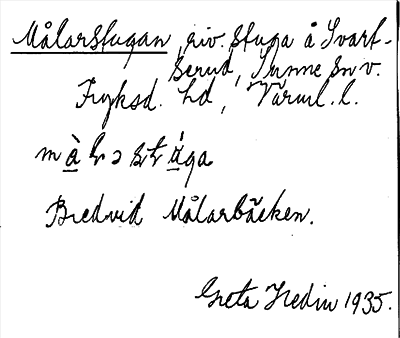 Målarstugan, riv. stuga å Svart-
serud, Sunne sn v.
Fryksd. hd, Värml. l.
m à l ə s t ú g a
Bredvid Målarbäcken.
Greta Hedin 1935.